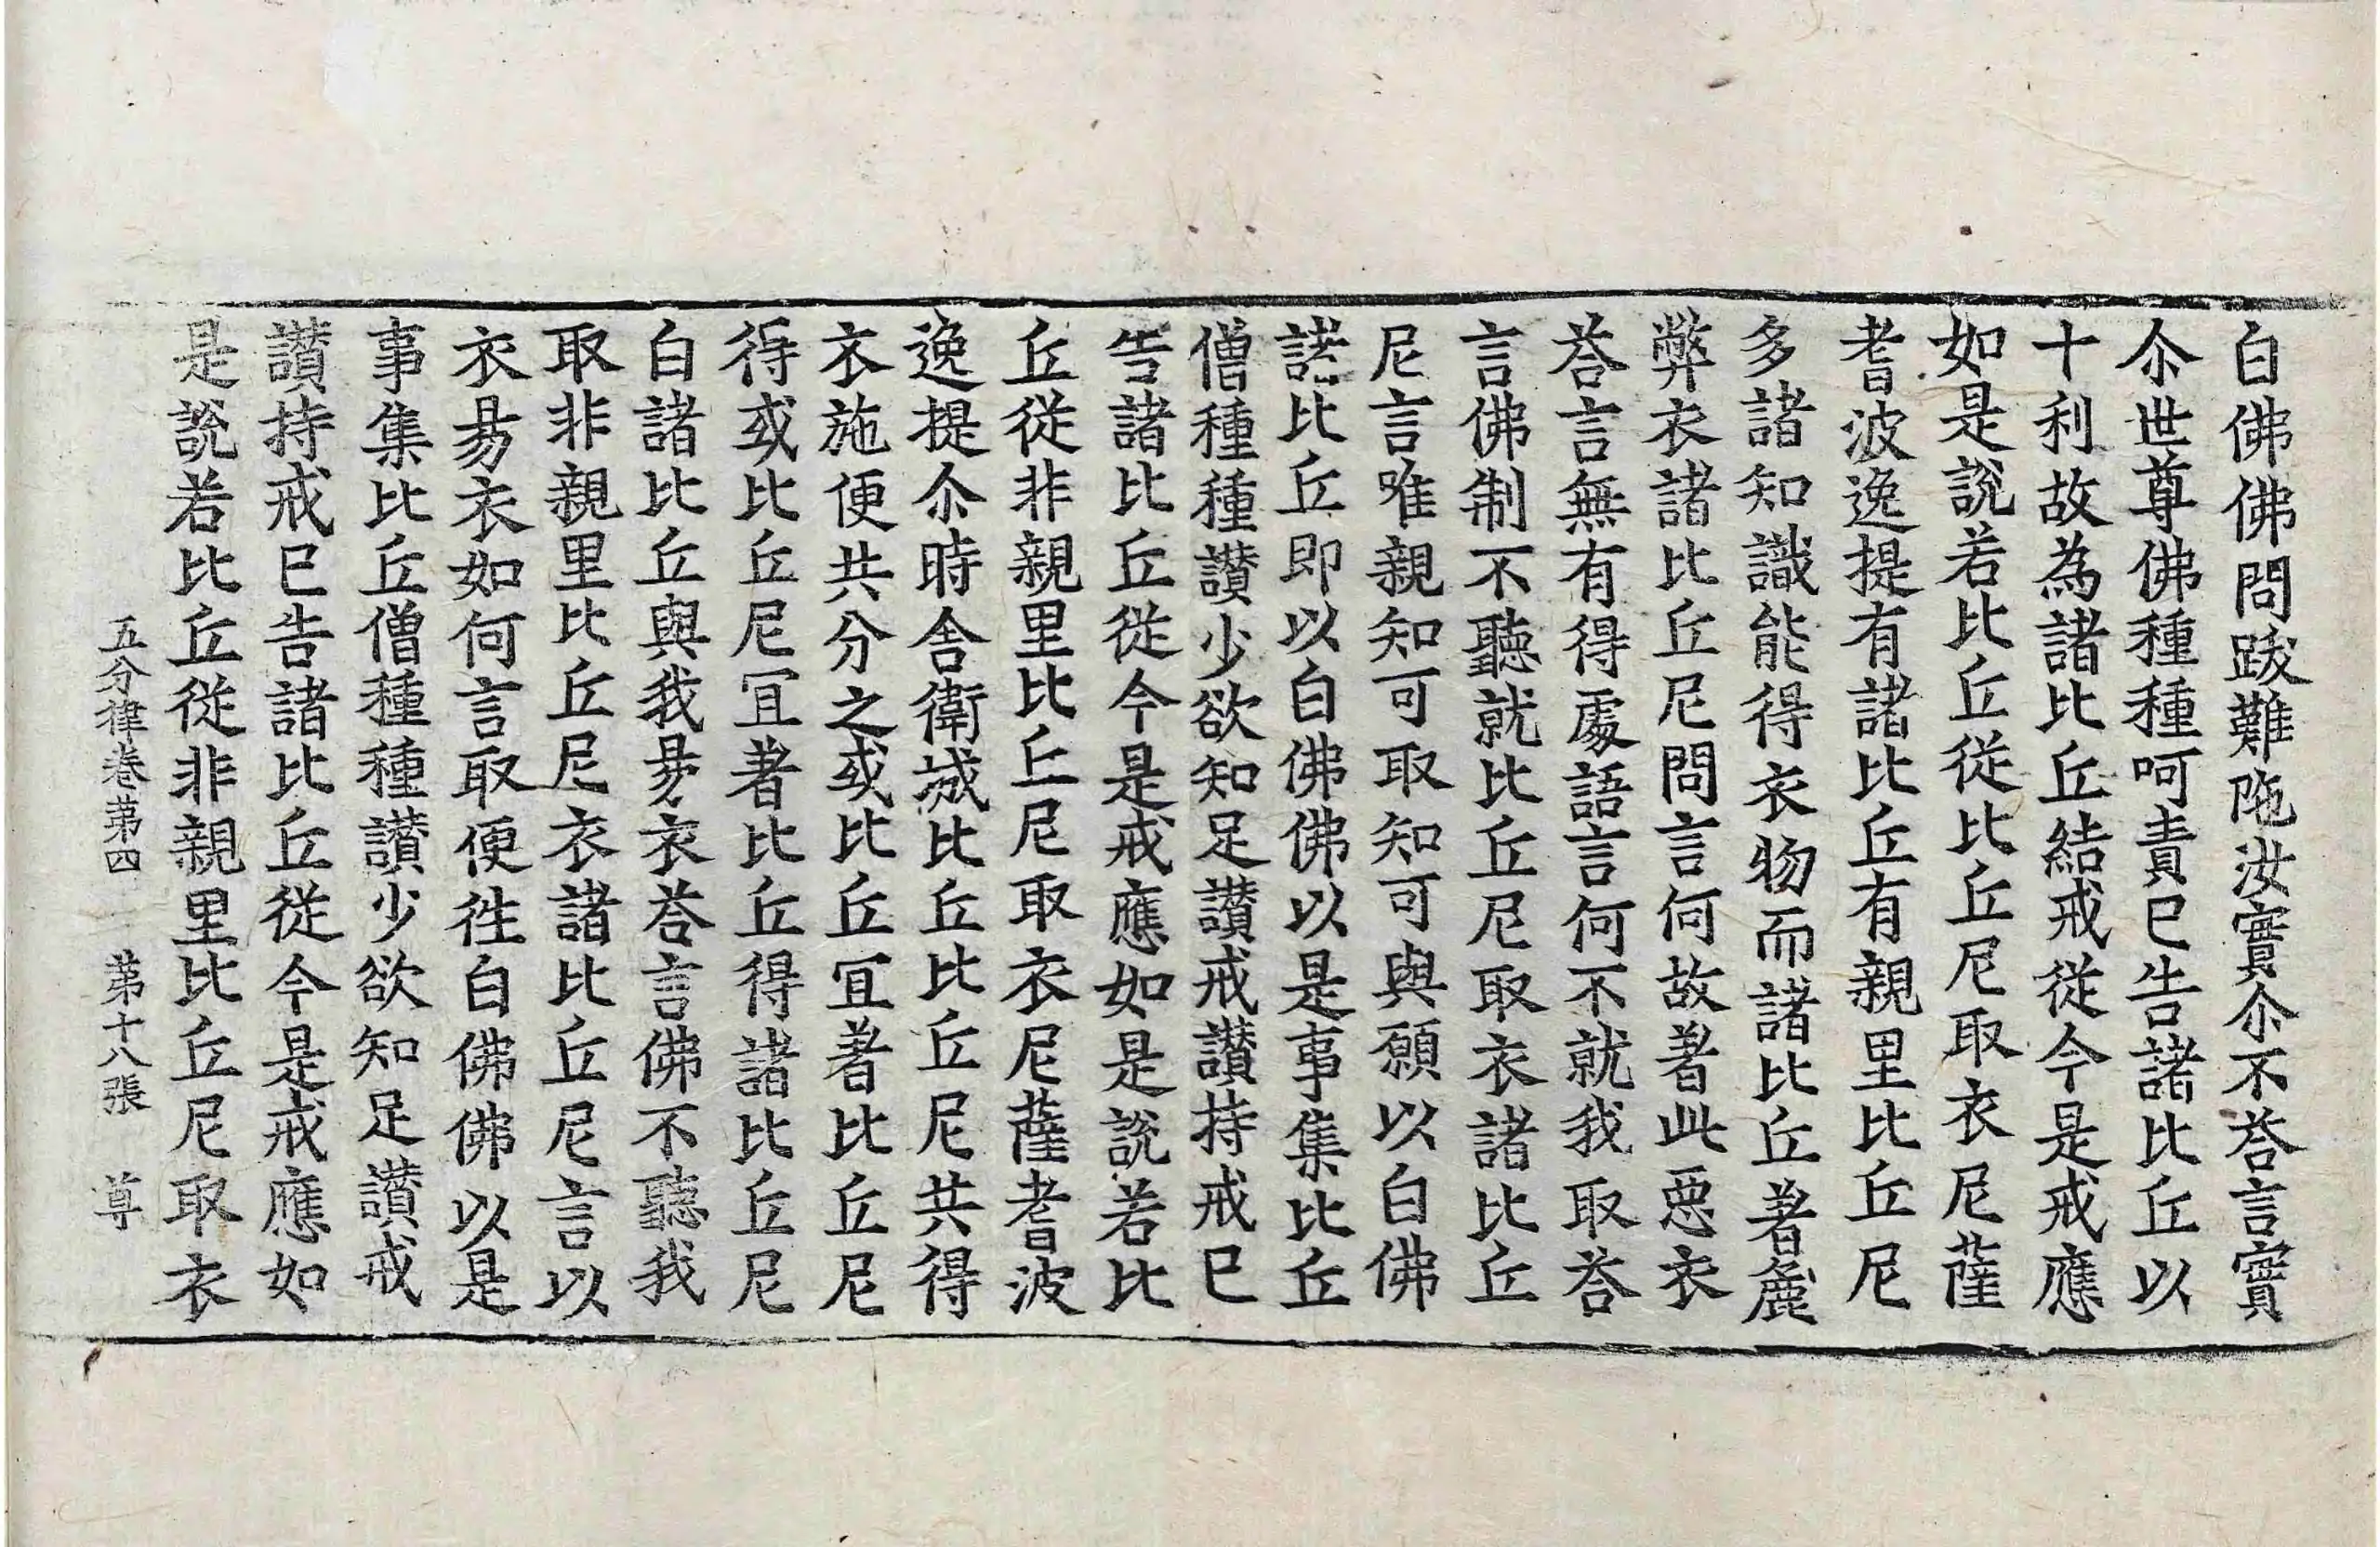 白佛佛問跋難陁汝實尒不荅言實
尒世尊佛種種呵責已告諸比丘以
十利故為諸比丘結戒從今是戒應
如是說若比丘從比丘尼取衣尼薩
耆波逸提有諸比丘有親里比丘尼
多諸知識能得衣物而諸比丘著麁
弊衣諸比丘尼問言何故著此惡衣
荅言無有得處語言何不就我取荅
言佛制不聽就比丘尼取衣諸比丘
尼言唯親知可取知可與願以白佛
諸比丘即以白佛佛以是事集比丘
僧種種讃少欲知足讃戒讃持戒已
告諸比丘從今是戒應如是說若比
丘從非親里比丘尼取衣尼薩耆波
逸提尒時舎衛城比丘比丘尼共得
衣施便共分之或比丘冝著比丘尼
得或比丘尼冝著比丘得諸比丘尼
白諸比丘與我昜衣荅言佛不聽我
取非親里比丘尼衣諸比丘尼言以
衣昜衣如何言取便徃白佛佛以是
事集比丘僧種種讃少欲知足讃戒
讃持戒已告諸比丘從今是戒應如
是說若比丘從非親里比丘尼取衣
五分律卷苐四 苐十八張 尊